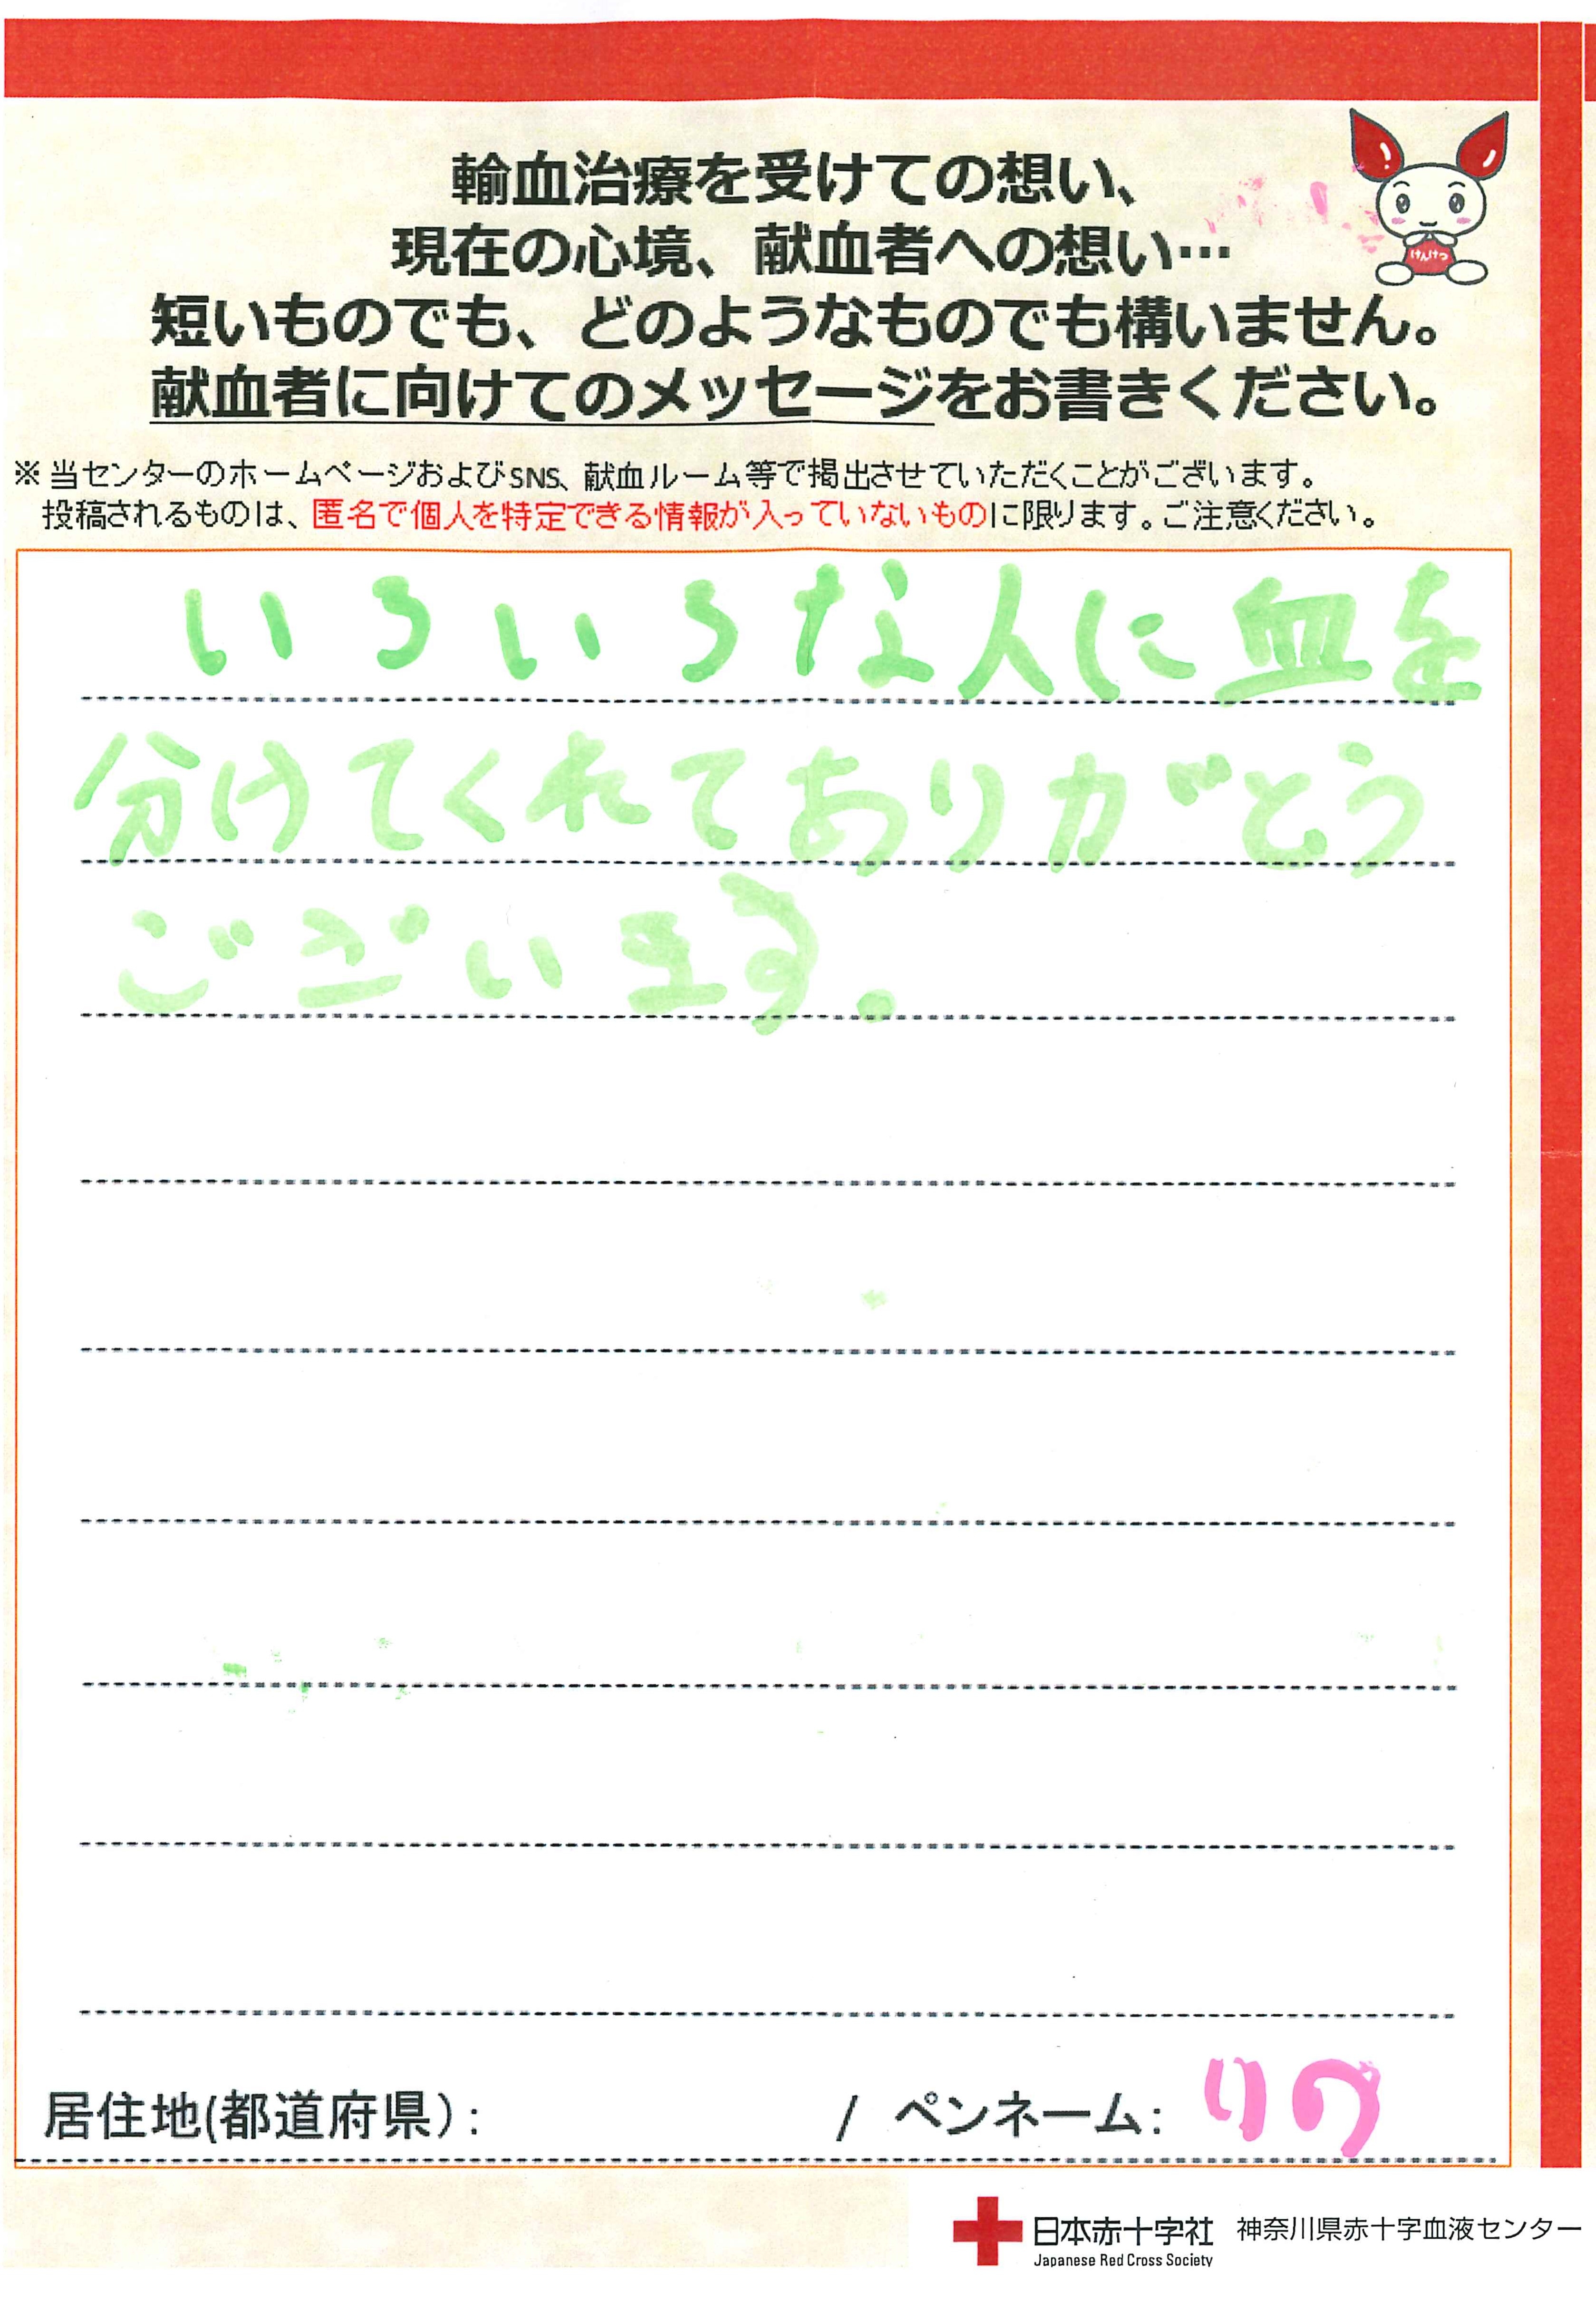 輸血治療を受けての想い、
現在の心境、献血者への想い…
短いものでも、どのようなものでも構いません。
献血者に向けてのメッセージをお書きください。
けんけつ
※当センターのホームページおよびSNS、献血ルーム等で掲出させていただくことがございます。
投稿されるものは、匿名で個人を特定できる情報が入っていないものに限ります。ご注意ください。
いろいろな人に血を
分けてくれてありがとう
ございます。
居住地(都道府県): / ペンネーム: りの
日本赤十字社 神奈川県赤十字血液センター
Japanese Red Cross Society